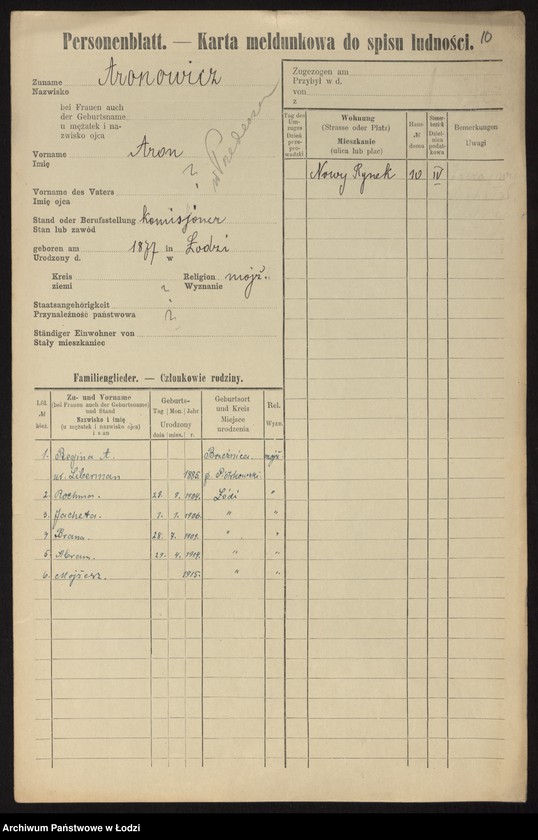 Personenblatt. — Karta meldunkowa do spisu ludności. 10
Zuname
Nazwisko
Aronowicz
bei Frauen auch
der Geburtsname
u mężatek i na-
zwisko ojca
Vorname
Imię
Aron
Vorname des Vaters
Imię ojca
?
Stand oder Berufsstellung
Stan lub zawód
Komisjoner
geboren am 1877 in Łodzi
Urodzony d. w
Kreis
ziemi
Religion
Wyznanie
mojż.
Staatsangehörigkeit
Przynależność państwowa
?
Ständiger Einwohner von
Stały mieszkaniec
Zugezogen am
Przybył w d.
von
z
Tag des Um-zuges
Dzień przepro-wadzki
Wohnung
(Strasse oder Platz)
Mieszkanie
(ulica lub plac)
Haus-
№
domu
Bemerkungen
Uwagi
Nowy Rynek 10 IV
Familienglieder. — Członkowie rodziny.
Zu- und Vorname
(bei Frauen auch der Geburtsname)
und Stand
Nazwisko i imię
(u mężatek i nazwisko ojca)
i stan
Geburts-
Tag Mon. Jahr
Urodzony
dnia mies. r.
Geburtsort
und Kreis
Miejsce
urodzenia
Rel.
Wyzn.
1. Regina A. Brzeźnica mojż.
ur. Liberman 1885 p. Piotrkowski
2. Rochma. Łódź "
3. Jacheta. 1. 1. 1906. " "
4. Brana. 28. 7. " "
5. Abram. " "
6. Mojżesz. 1915. " "
Archiwum Państwowe w Łodzi